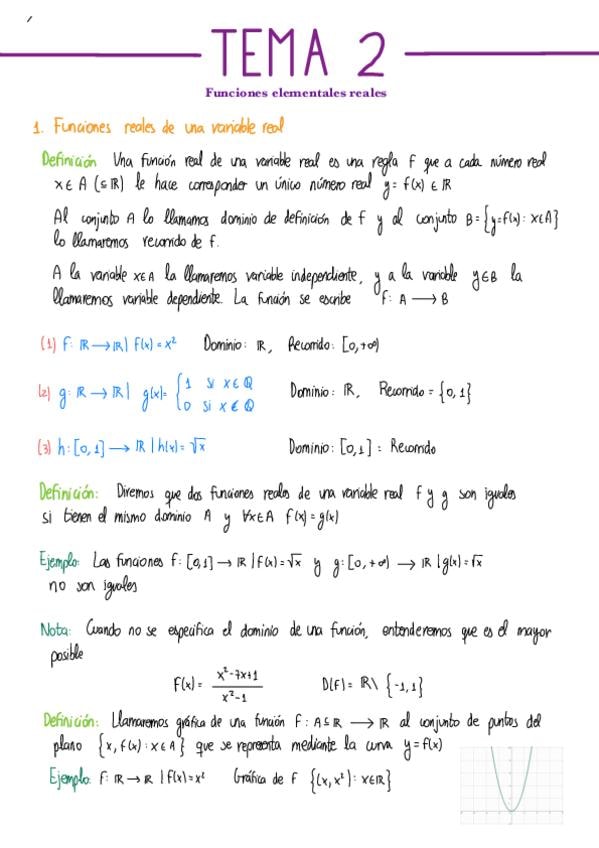 TEMA 2
Funciones elementales reales
1. Funciones reales de una variable real
Definición Una función real de una variable real es una regla f que a cada número real
x ∈ A (⊆ ℝ) le hace corresponder un único número real y = f(x) ∈ ℝ
Al conjunto A lo llamamos dominio de definición de f y al conjunto B = {y=f(x) : x∈A}
lo llamaremos recorrido de f.
A la variable x∈A la llamaremos variable independiente, y a la variable y∈B la
llamaremos variable dependiente. La función se escribe f: A ⟶ B
(1) f: ℝ ⟶ ℝ | f(x) = x² Dominio: ℝ, Recorrido: [0,+∞)
(2) g: ℝ ⟶ ℝ | g(x) = { 1 si x ∈ ℚ
0 si x ∉ ℚ Dominio: ℝ, Recorrido = {0, 1}
(3) h: [0, 1] ⟶ ℝ | h(x) = √x Dominio: [0,1] = Recorrido
Definición: Diremos que dos funciones reales de una variable real f y g son iguales
si tienen el mismo dominio A y ∀x∈A f(x) = g(x)
Ejemplo: Las funciones f: [0,1] → ℝ | f(x) = √x y g: [0, +∞) → ℝ | g(x) = √x
no son iguales
Nota: Cuando no se especifica el dominio de una función, entenderemos que es el mayor
posible
f(x) = (x²-7x+1)/(x²-1) D(f) = ℝ\ {-1,1}
Definición: Llamaremos gráfica de una función f: A⊆ℝ ⟶ ℝ al conjunto de puntos del
plano {x, f(x) : x∈A} que se representa mediante la curva y = f(x)
Ejemplo: f: ℝ → ℝ | f(x) = x² Gráfica de f {(x, x²) : x∈ℝ}